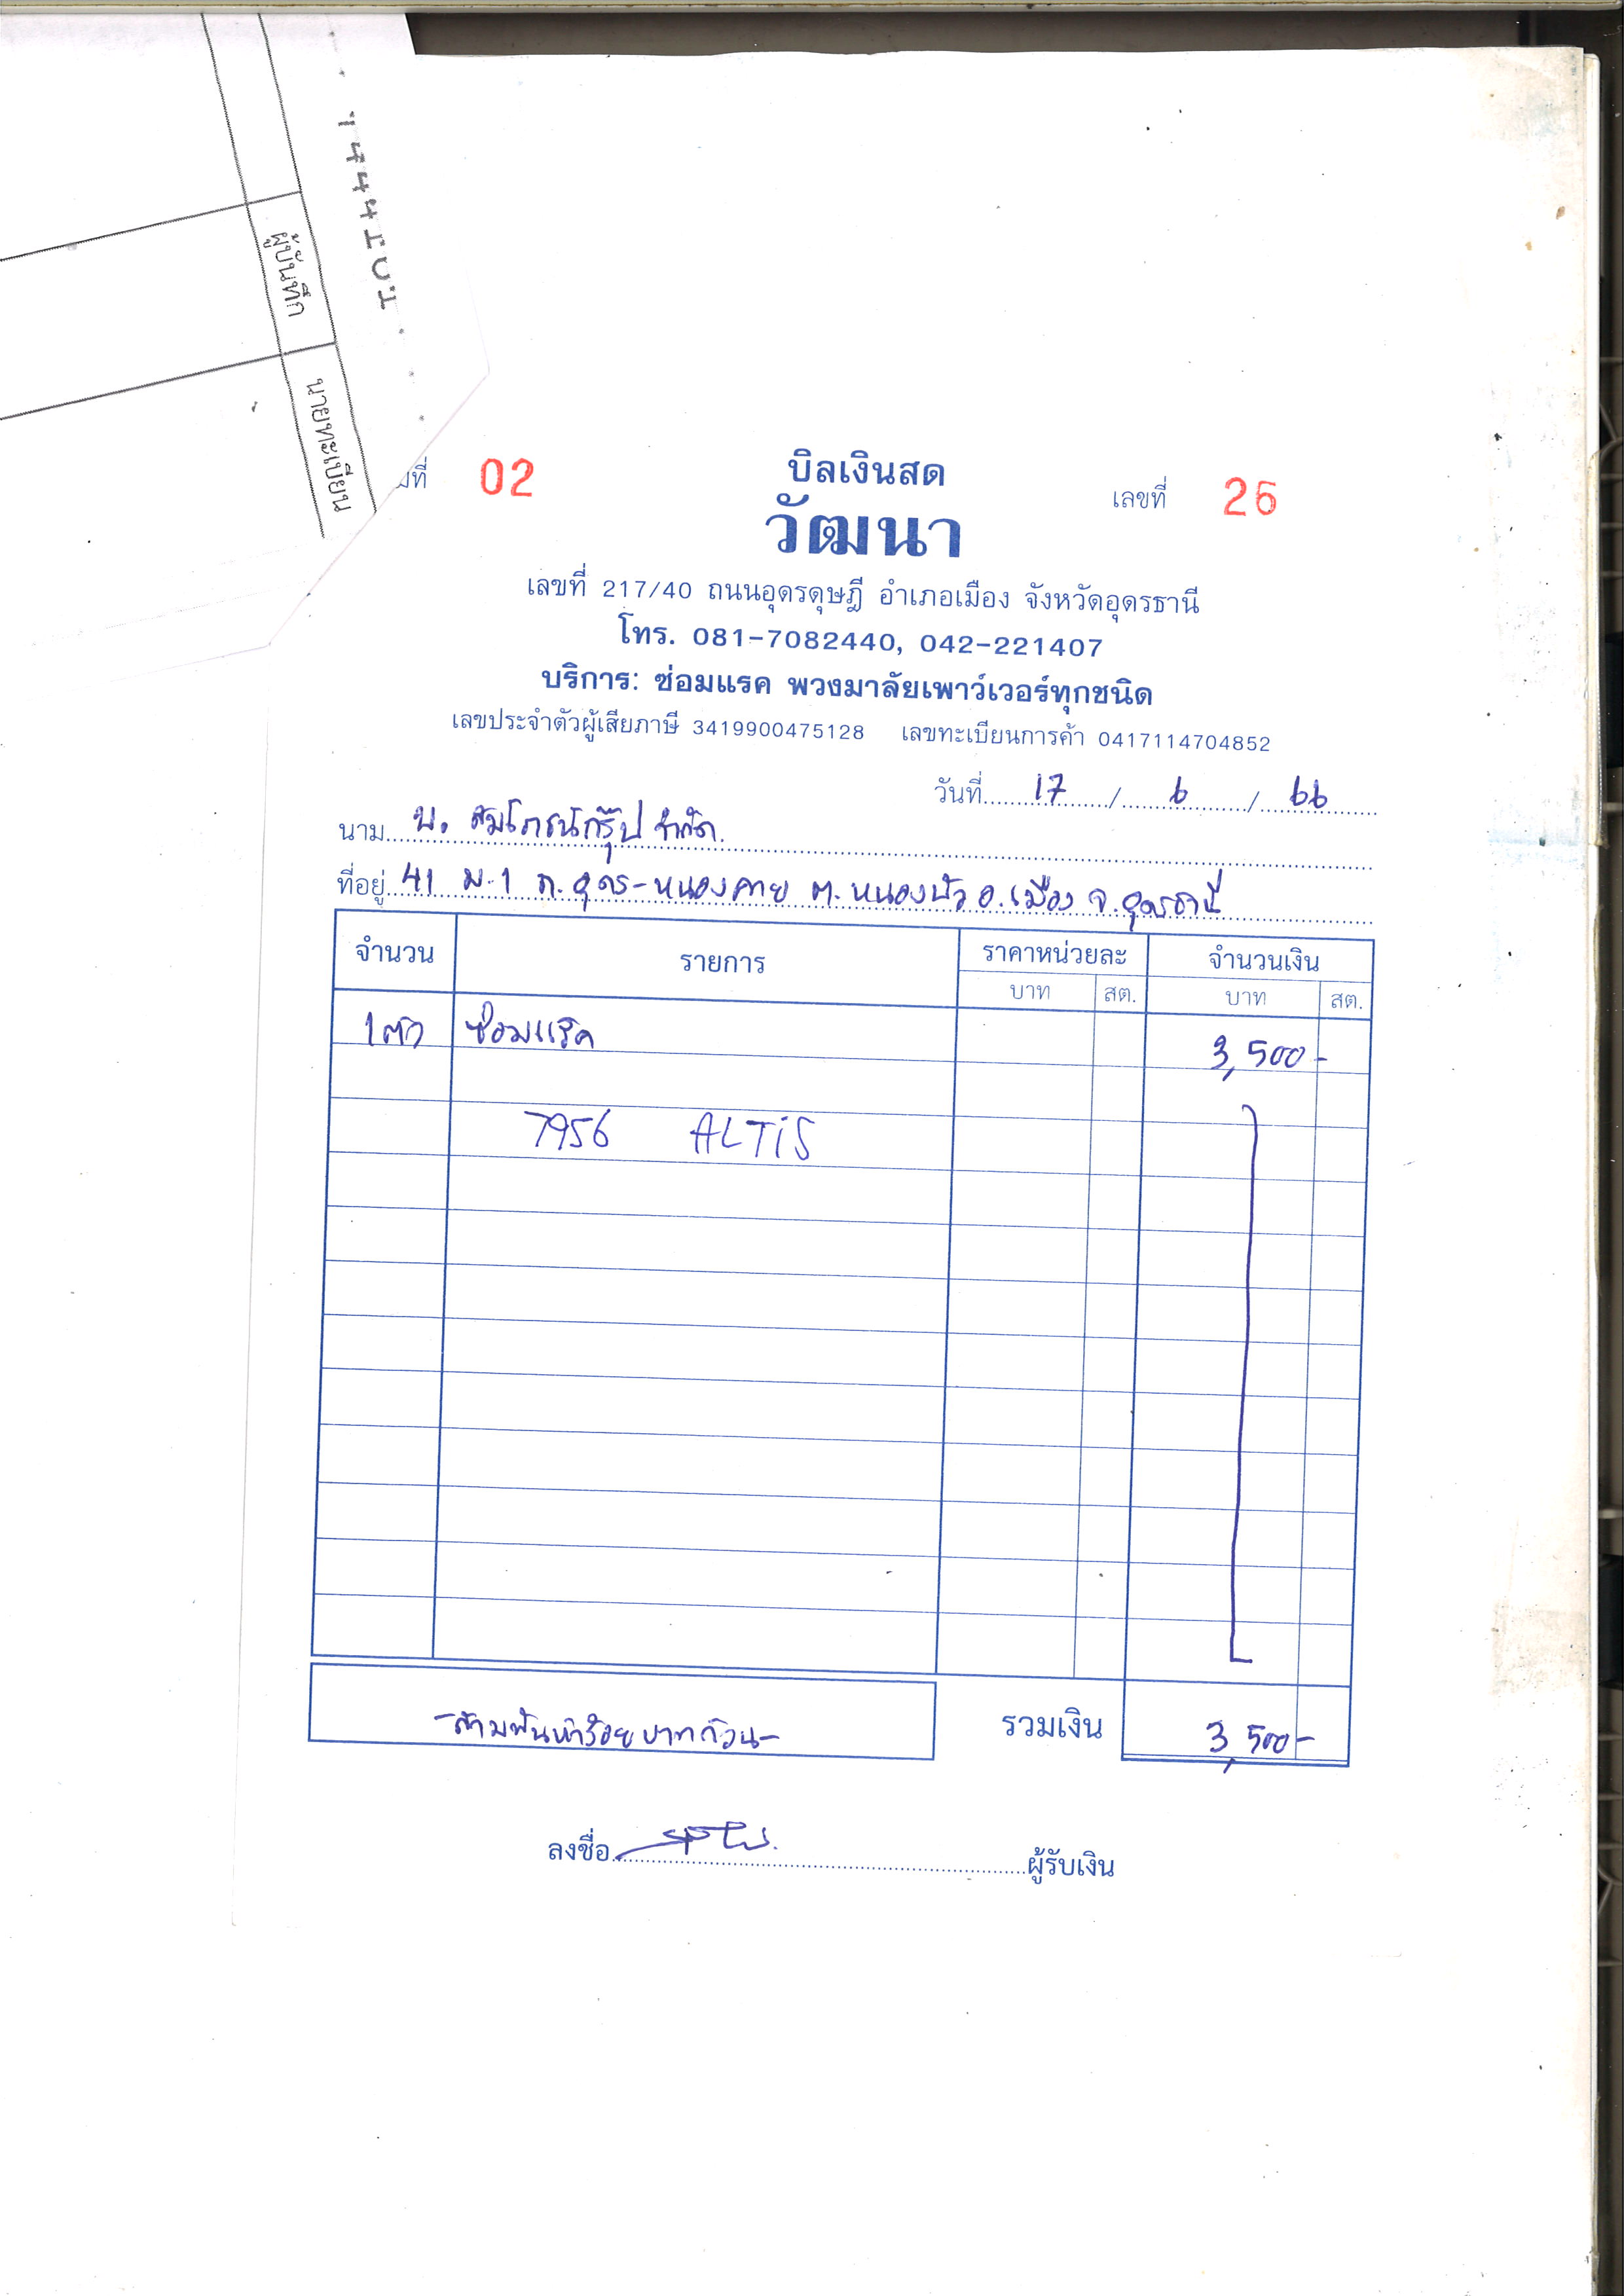 ผู้บันทึก
นายทะเบียน
มที่ 02
บิลเงินสด
เลขที่ 26
วัฒนา
เลขที่ 217/40 ถนนอุดรดุษฎี อำเภอเมือง จังหวัดอุดรธานี
โทร. 081-7082440, 042-221407
บริการ: ซ่อมแรค พวงมาลัยเพาว์เวอร์ทุกชนิด
เลขประจำตัวผู้เสียภาษี 3419900475128 เลขทะเบียนการค้า 0417114704852
วันที่ 17 / 6 / 66
นาม บ. สมโภชน์กรุ๊ป จำกัด
ที่อยู่ 41 ม.1 ถ.อุดร-หนองคาย ต.หนองบัว อ.เมือง จ.อุดรธานี
จำนวน รายการ ราคาหน่วยละ จำนวนเงิน
บาท สต. บาท สต.
1 ตัว ซ่อมแร็ค 3,500-
7956 ALTiS
-สามพันห้าร้อยบาทถ้วน- รวมเงิน 3,500-
ลงชื่อ ผู้รับเงิน